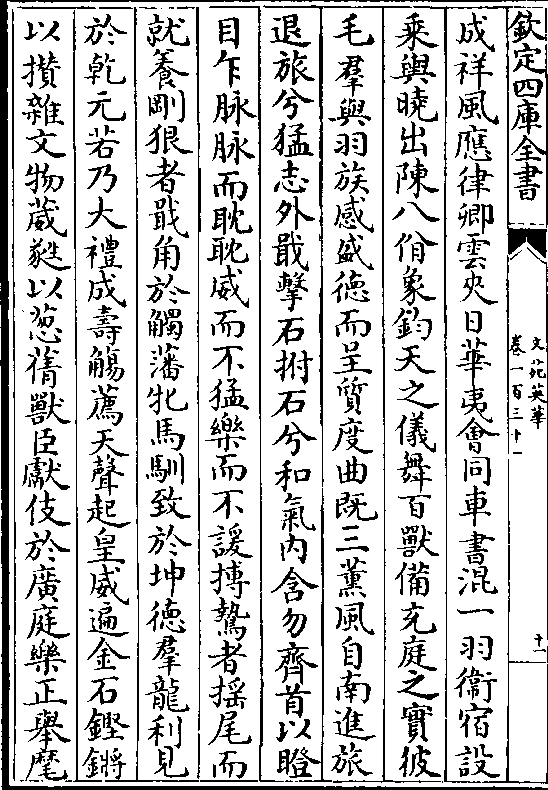 欽定四庫全書
文苑英華
卷一百三十一
十一
成祥風應律卿雲夾日華夷會同車書混一羽衛宿設
乘輿曉出陳八佾象鈞天之儀舞百獸備充庭之實彼
毛羣與羽族感盛德而呈質度曲既三薰風自南進旅
退旅兮猛志外戢擊石拊石兮和氣内含勿齊首以瞪
目乍脉脉而耽耽威而不猛樂而不諼摶鷙者揺尾而
就養剛狠者戢角於觸藩牝馬馴致於坤德羣龍利見
於乾元若乃大禮成壽觴薦天聲起皇威遍金石鏗鏘
以攅雜文物葳蕤以葱蒨獸臣獻伎於廣庭樂正舉麾